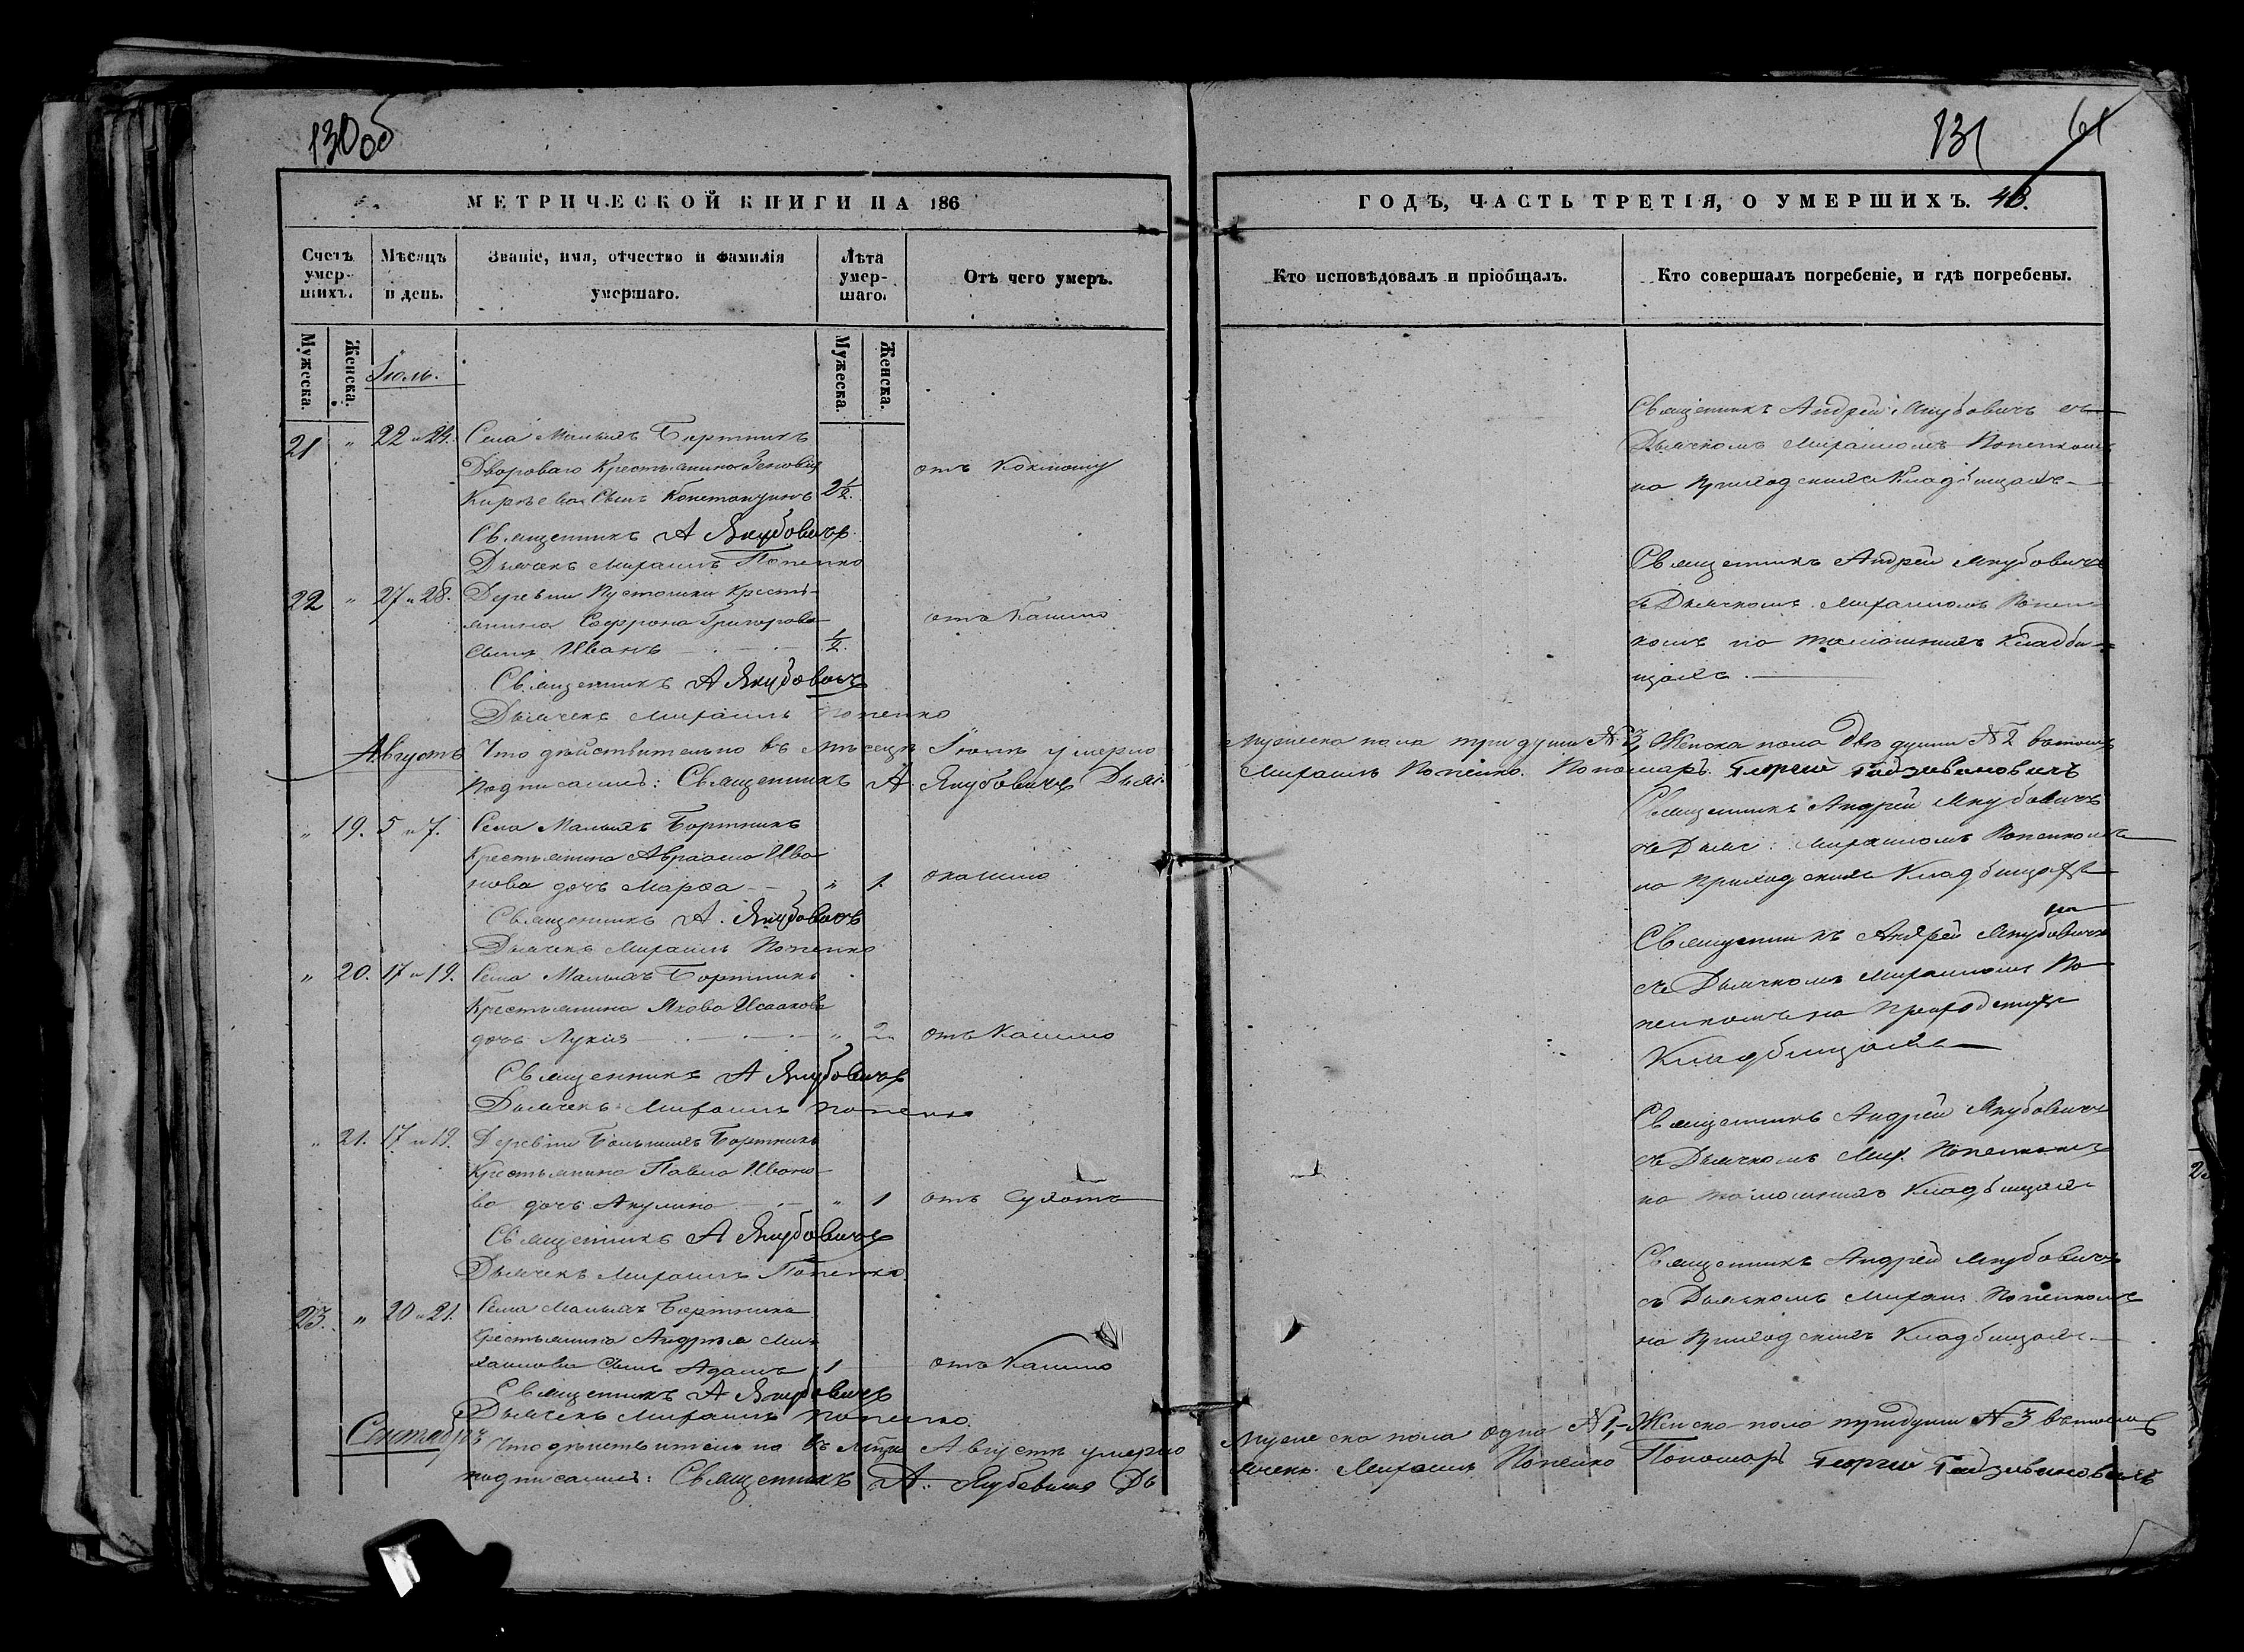 130 об
МЕТРИЧЕСКОЙ КНИГИ НА 186
Счетъ умер-шихъ.
Мѣсяцъ и день.
Званіе, имя, отчество и фамилія умершаго.
Лѣта умер-шаго.
Отъ чего умеръ.
Мужеска.
Женска.
Мужеска.
Женска.
Іюль.
21 " 22 и 24. Села Малыхъ Бортникъ
Двороваго Крестьянина Зеновія
Кирѣева Сынъ Константинъ 2½. отъ Коклюшу
Священникъ А Якубовичъ
Дьячекъ Михаилъ Попенко
22 " 27 и 28. Деревни Пустошки Кресть-
янина Софрона Григорова
сынъ Иванъ ½. отъ Кашлю
Священникъ А Якубовичъ
Дьячекъ Михаилъ Попенко
Августъ
Что дѣйствительно въ мѣсяцѣ Іюлѣ умерло
подписались: Священникъ А. Якубовичъ Дьяч.
" 19. 5 и 7. Села Малыхъ Бортникъ
Крестьянина Авраама Ива
нова дочь Марѳа " 1. окашлю
Священникъ А. Якубовичъ
Дьячекъ Михаилъ Попенко
" 20. 17 и 19. Села Малыхъ Бортникъ
Крестьянина Якова Исаакова
дочь Лукія " 2 отъ Кашлю
Священникъ А Якубовичъ
Дьячекъ Михаилъ Попенко
" 21. 17 и 19. Деревни Большихъ Бортникъ
Крестьянина Павла Ивано-
ва дочь Акулина " 1 отъ Сухотъ
Священникъ А Якубовичъ
Дьячекъ Михаилъ Попенко
23. " 20 и 21. Села Малыхъ Бортникъ
Крестьянина Андрея Ми-
хаилова Сынъ Адамъ 1 отъ Кашлю
Священникъ А Якубовичъ
Дьячекъ Михаилъ Попенко
Сентябрь
Что дѣйствительно въ Августѣ умерло
подписались: Священникъ А. Якубовичъ Дь
131 61
ГОДЪ, ЧАСТЬ ТРЕТІЯ, О УМЕРШИХЪ.
Кто исповѣдовалъ и пріобщалъ.
Кто совершалъ погребеніе, и гдѣ погребены.
Священникъ Андрей Якубовичъ съ
Дьячкомъ Михаиломъ Попенкомъ
на Приходскихъ Кладбищахъ
Священникъ Андрей Якубовичъ
съ Дьячкомъ Михаиломъ Попен
комъ на тамошнихъ Кладби-
щахъ.
Мужеска пола три души № 3, Женска пола двѣ души № 2 въ томъ
Михаилъ Попенко. Пономарь Георгій
Священникъ Андрей Якубовичъ
съ Дьяч: Михаиломъ Попенкомъ
на приходскихъ Кладбищахъ
Священникъ Андрей Якубовичъ
съ Дьячкомъ Михаиломъ По
пенкомъ на Приходскихъ
Кладбищахъ
Священникъ Андрей Якубовичъ
съ Дьячкомъ Мих. Попенкомъ
на тамошнихъ Кладбищахъ
Священникъ Андрей Якубовичъ
съ Дьячкомъ Михаил. Попенкомъ
на Приходскихъ Кладбищахъ
Мужеска пола одна № 1, Женска пола три души № 3 въ томъ
ячекъ Михаилъ Попенко Пономарь Георгій